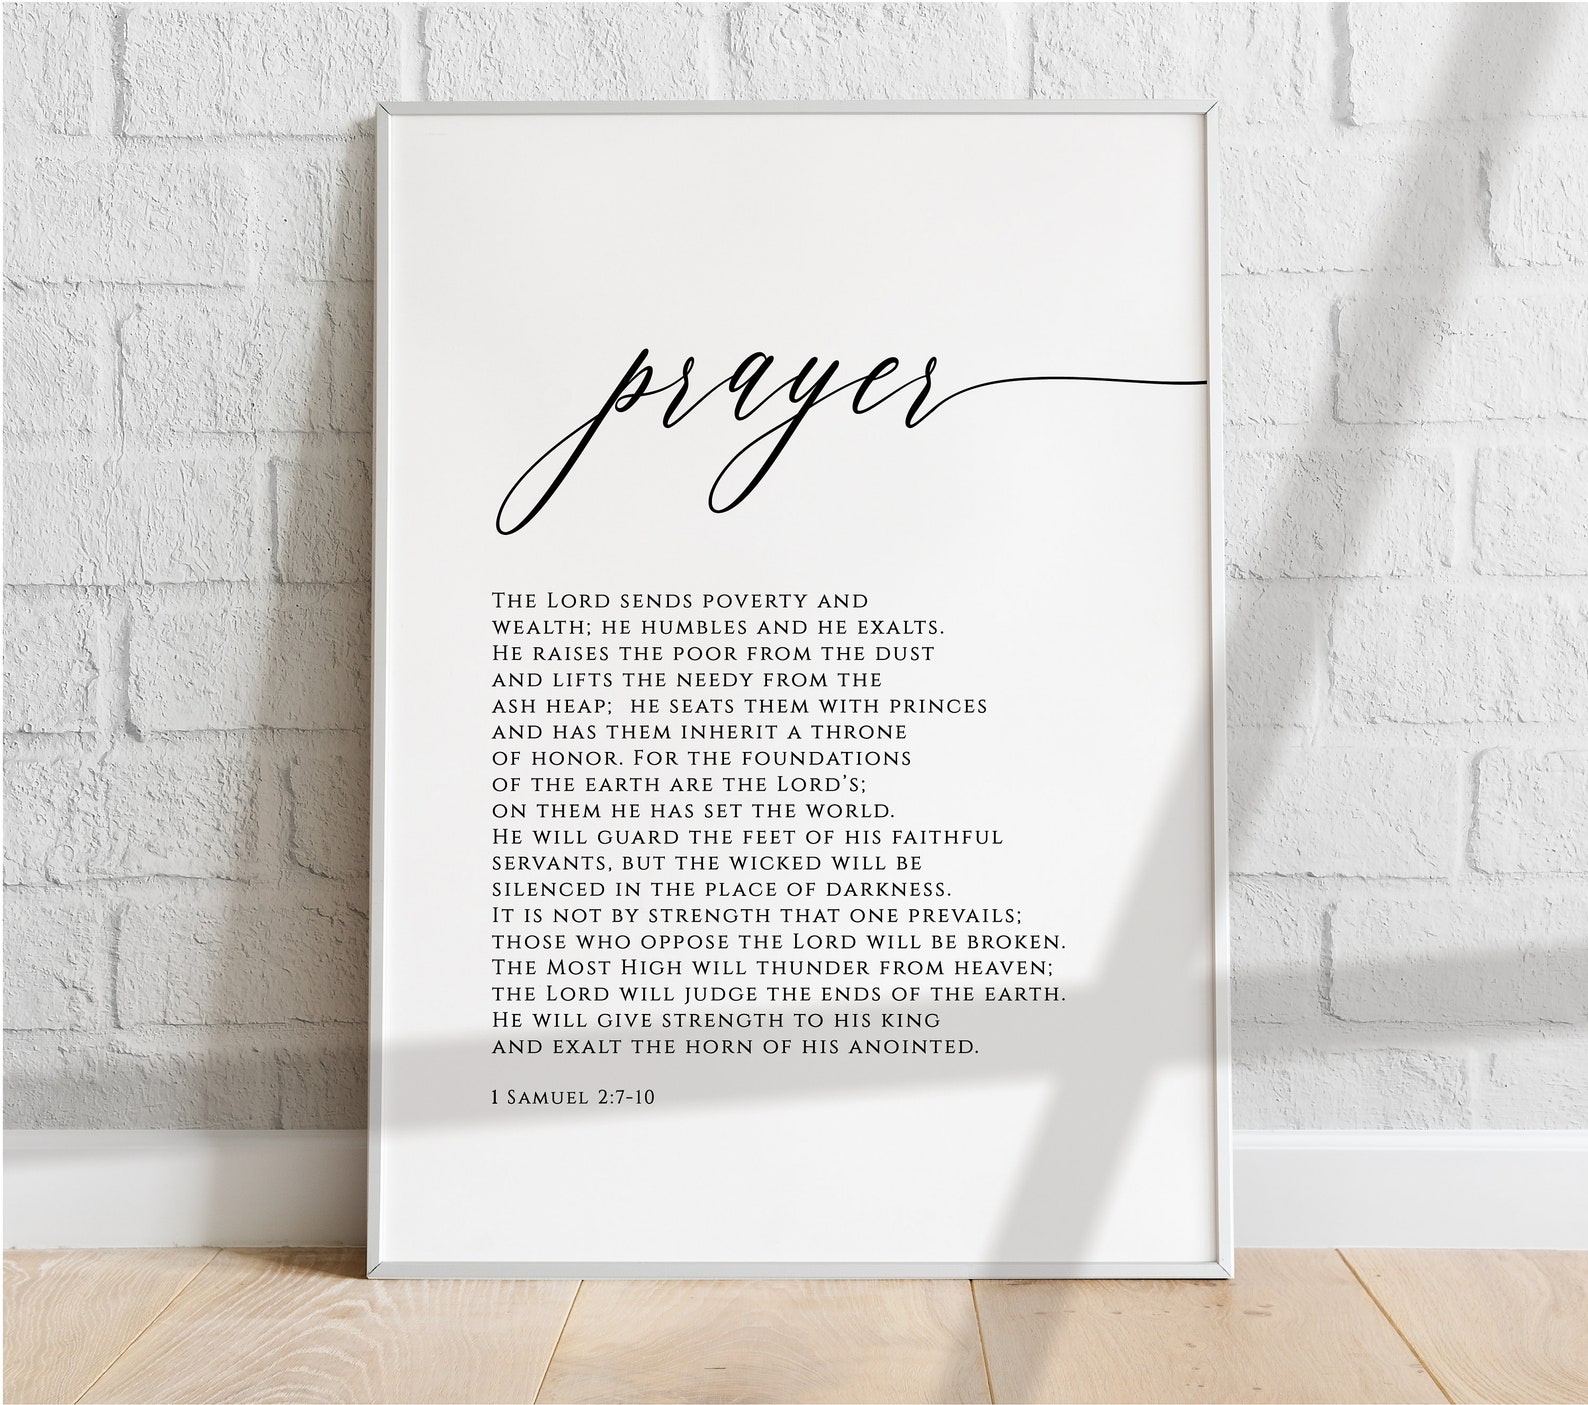 prayer
The Lord sends poverty and
wealth; he humbles and he exalts.
He raises the poor from the dust
and lifts the needy from the
ash heap;  he seats them with princes
and has them inherit a throne
of honor. For the foundations
of the earth are the Lord’s;
on them he has set the world.
He will guard the feet of his faithful
servants, but the wicked will be
silenced in the place of darkness.
It is not by strength that one prevails;
those who oppose the Lord will be broken.
The Most High will thunder from heaven;
the Lord will judge the ends of the earth.
He will give strength to his king
and exalt the horn of his anointed.
1 Samuel 2:7-10